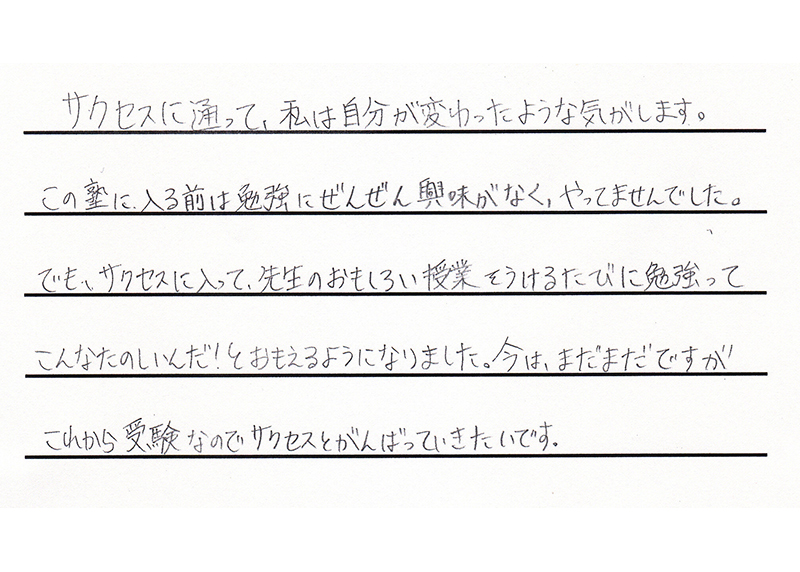 サクセスに通って、私は自分が変わったような気がします。
この塾に入る前は勉強にぜんぜん興味がなく、やってませんでした。
でも、サクセスに入って、先生のおもしろい授業をうけるたびに勉強って
こんなたのしいんだ!とおもえるようになりました。今は、まだまだですが
これから受験なのでサクセスとがんばっていきたいです。